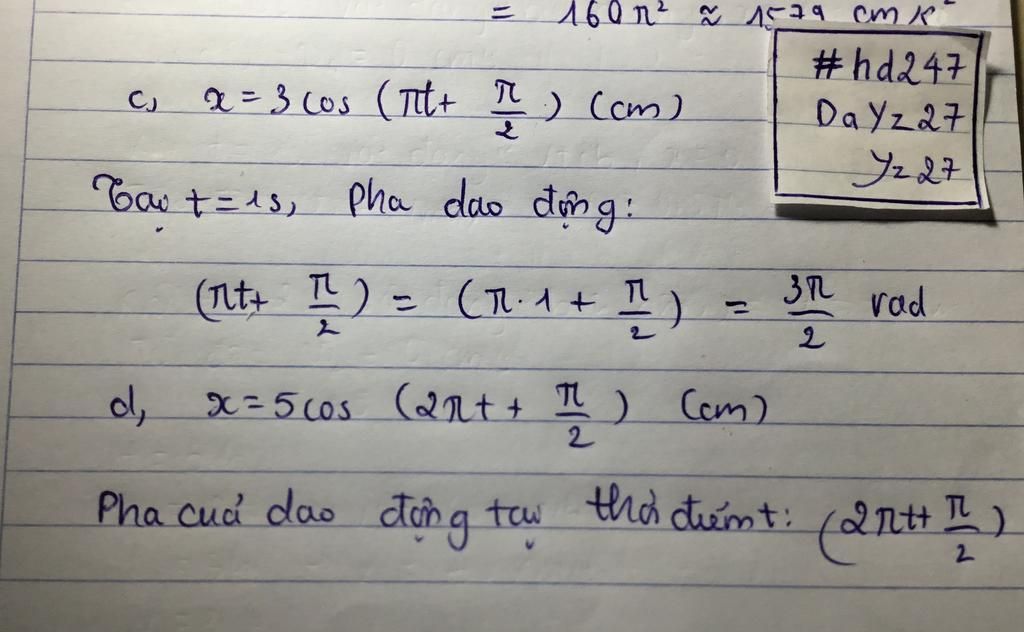 = 160π² ≈ 1579 cm/s²
#hd247
DaYz27
Yz27
c, x = 3 cos (πt + π/2) (cm)
Tại t = 1s, Pha dao động:
(πt + π/2) = (π · 1 + π/2) = 3π/2 rad
d, x = 5 cos (2πt + π/2) (cm)
Pha cuả dao động tại thời điểm t: (2πt + π/2)